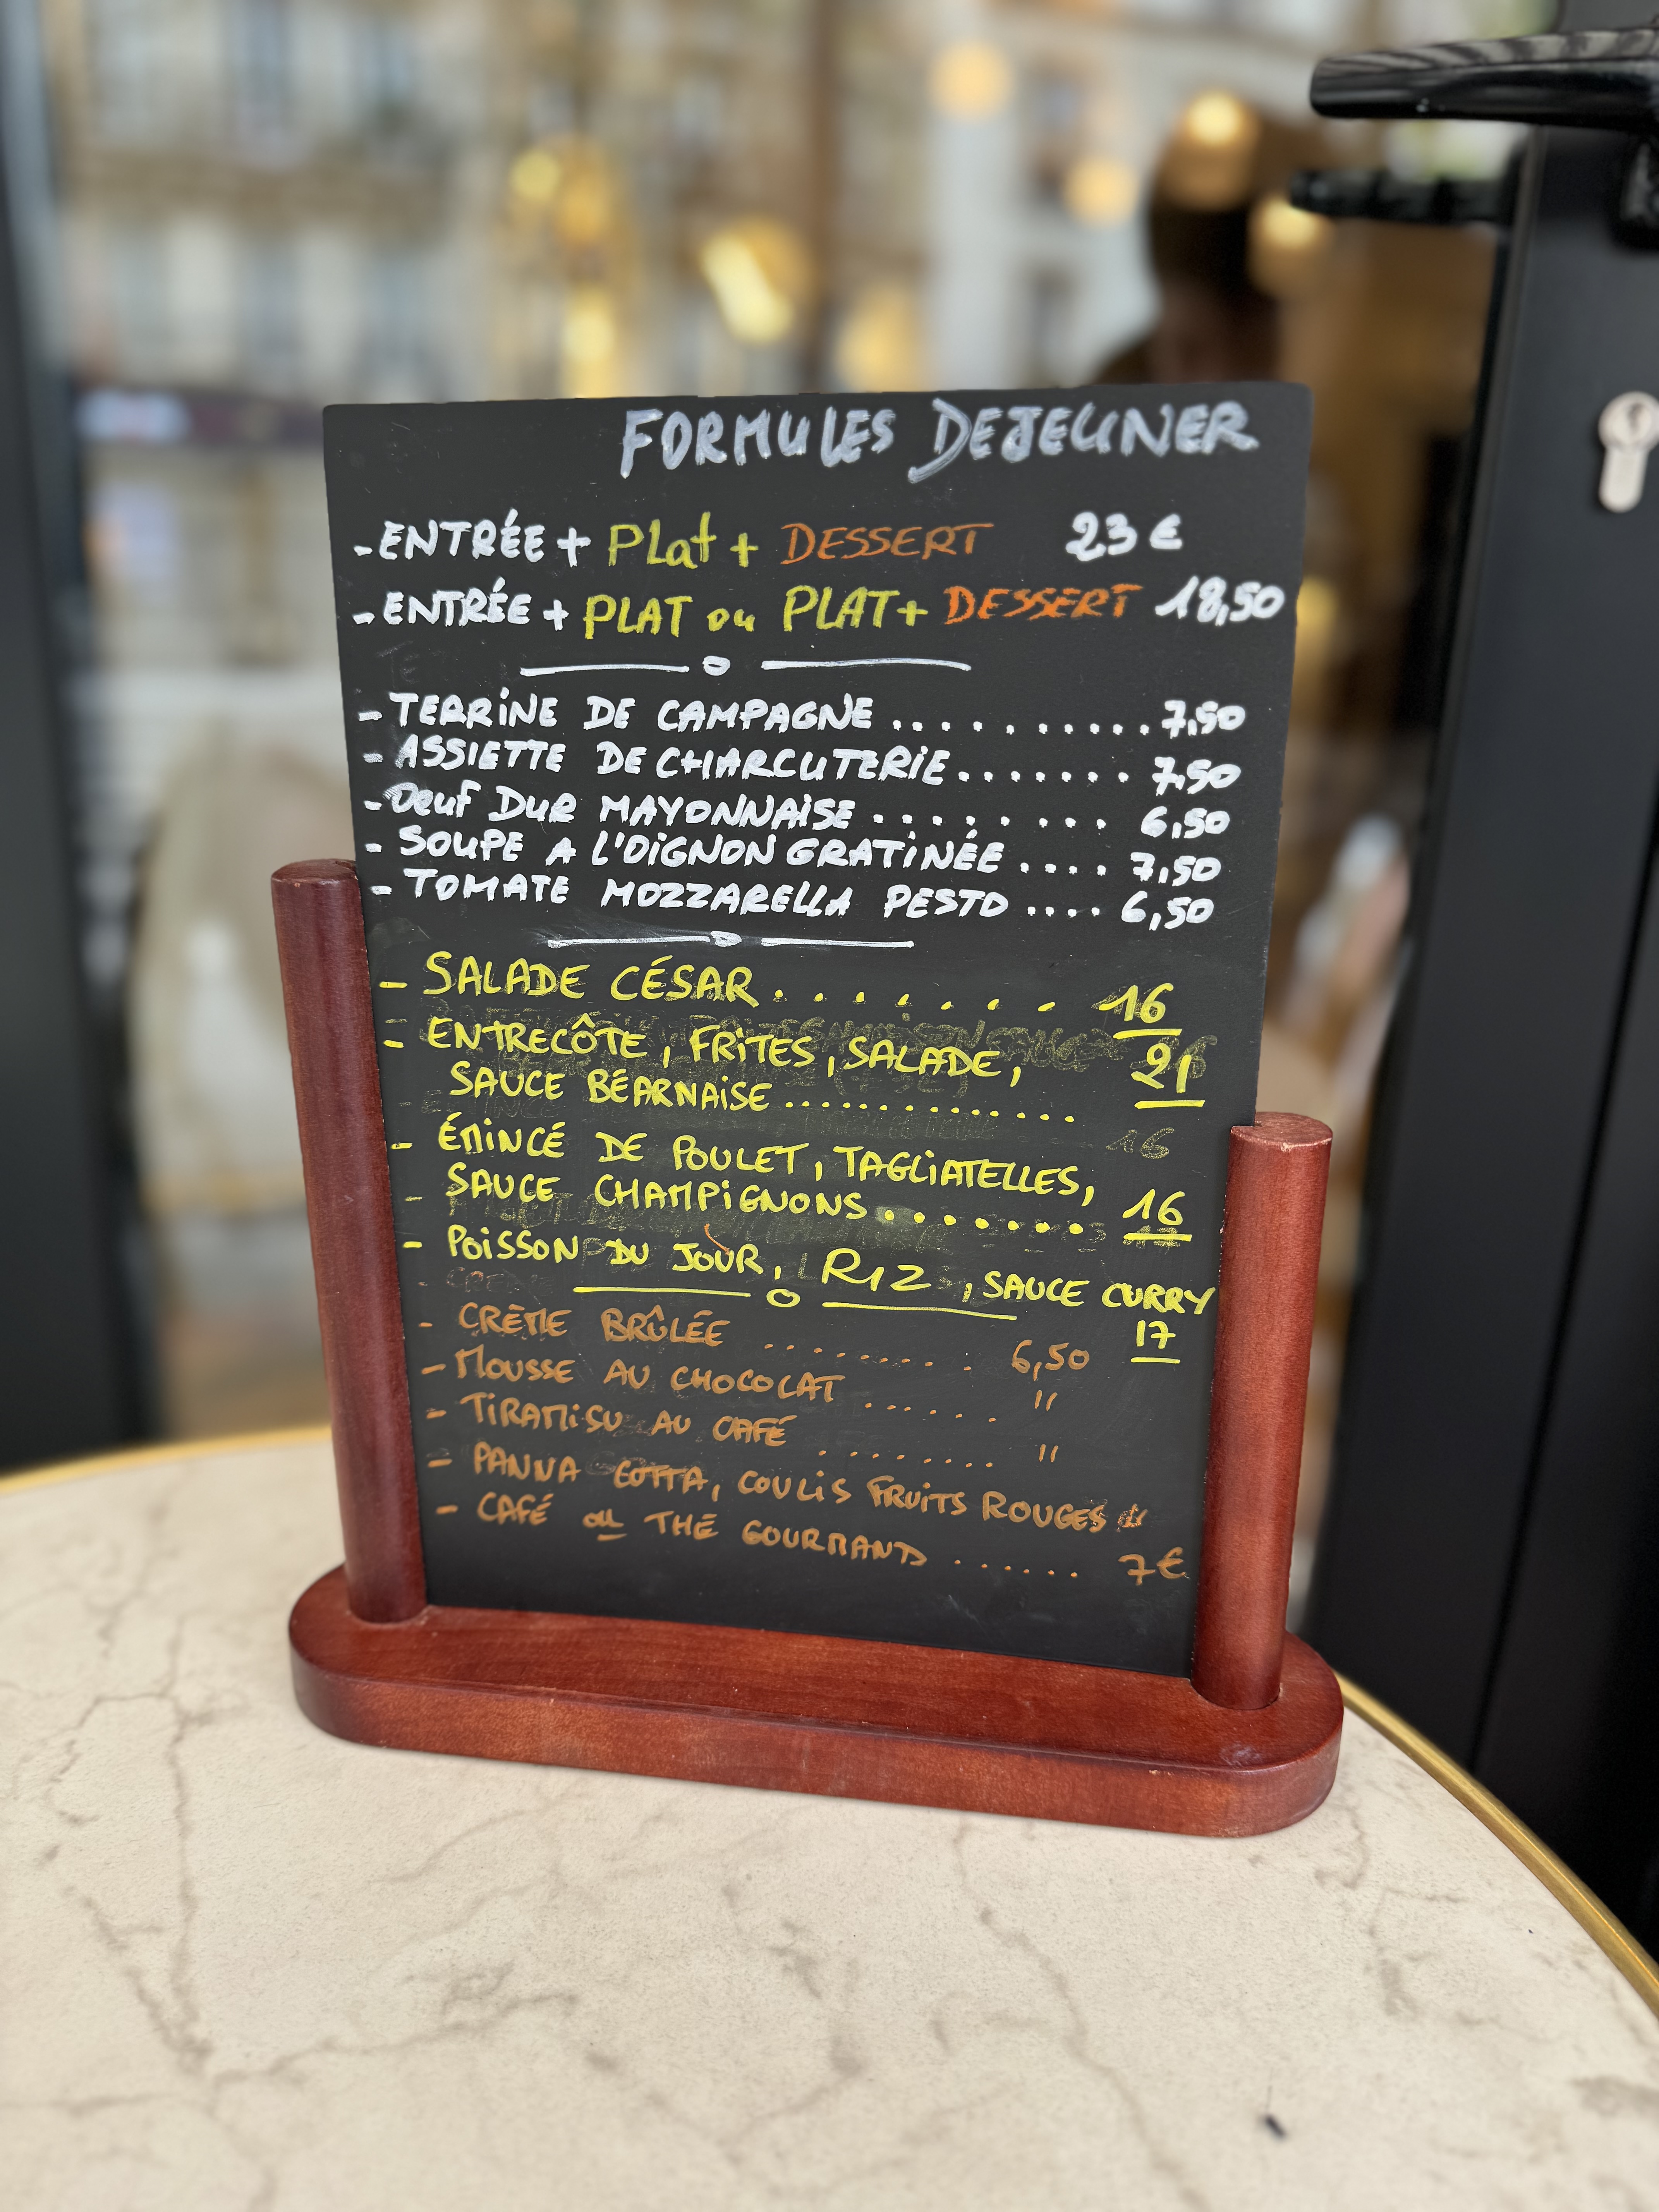 FORMULES DEJEUNER
- ENTRÉE + PLat + DESSERT 23 €
- ENTRÉE + PLAT ou PLAT + DESSERT 18,50
- TERRiNE DE CAMPAGNE .......... 7,50
- ASSIETTE DE CHARCUTERiE ....... 7,50
- Oeuf DUR MAYONNAiSE ........ 6,50
- SOUPE A L'OiGNON GRATiNÉE .... 7,50
- TOMATE MOZZARELLA PESTO .... 6,50
- SALADE CÉSAR ....... 16
- ENTRECÔTE, FRiTES, SALADE, 21
SAUCE BÉARNAiSE ..............
- ÉMiNCÉ DE POULET, TAGLiATELLES,
SAUCE CHAMPiGNONS ....... 16
- POiSSON DU JOUR, RIZ, SAUCE CURRY
17
- CRÈME BRÛLÉE .......... 6,50
- MOUSSE AU CHOCOLAT ...... "
- TiRAMiSU AU CAFÉ ......... "
- PANNA COTTA, COULiS FRUiTS ROUGES "
- CAFÉ ou THÉ GOURMAND ...... 7€